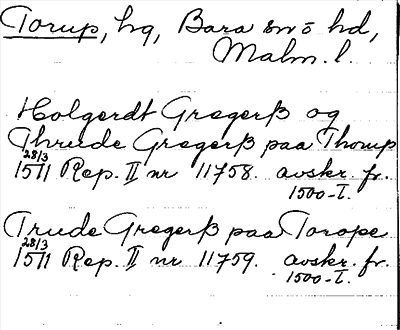 Torup, hg, Bara sn o hd,
Malm. l.
Holgerdt Gregerß og
Thrude Gregerß paa Thorup
28/3
1511 Rep. II nr 11758. avskr. fr.
1500-t.
Trude Gregerß paa Torope
28/3
1511 Rep. II nr 11759. avskr. fr.
1500-t.